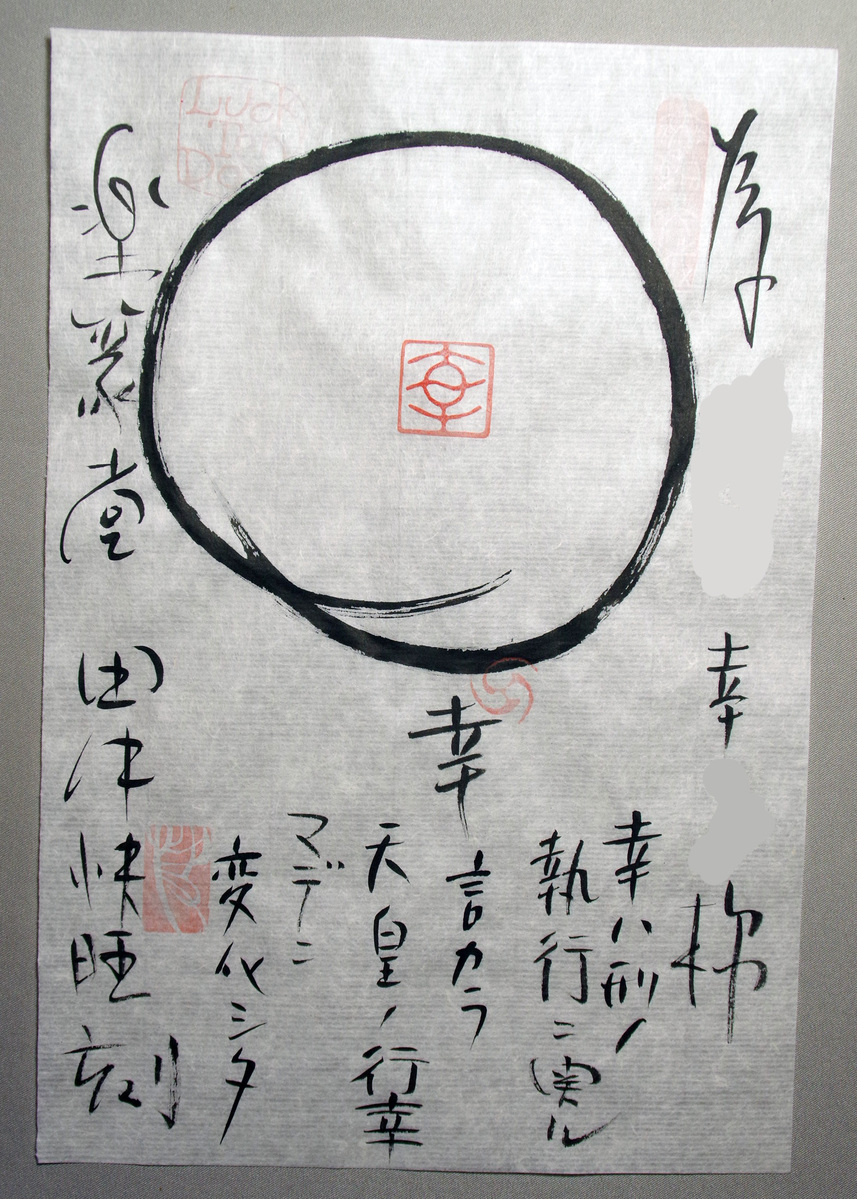 為
幸
様
幸ハ刑ノ
執行ニ関ル
幸
幸
言カラ
天皇ノ行幸
マデニ
変化シタ
Luck
Ten
Do
楽篆堂
田中快旺刻